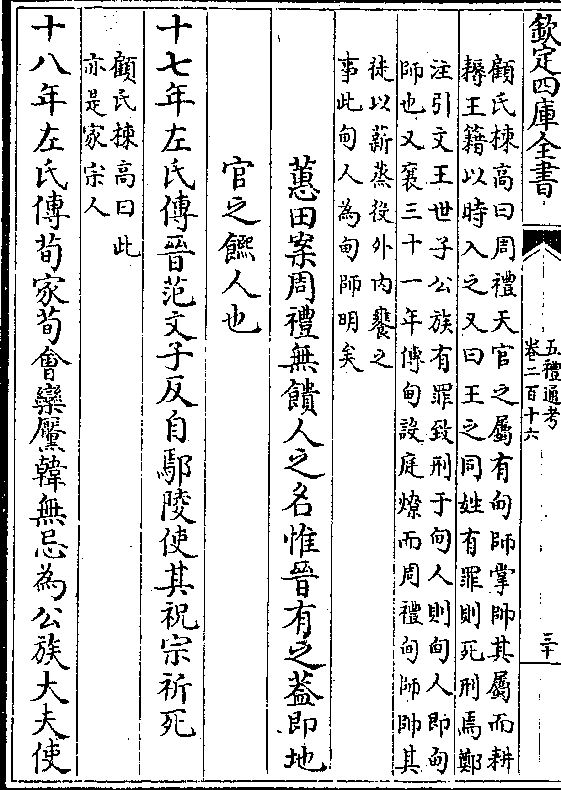 欽定四庫全書
五禮通考
卷二百十六
三十
顧氏棟高曰周禮天官之屬有甸師掌帥其屬而耕
耨王籍以時入之又曰王之同姓有罪則死刑焉鄭
注引文王世子公族有罪致刑于甸人則甸人即甸
師也又襄三十一年傳甸設庭燎而周禮甸師帥其
徒以薪蒸役外内饔之
事此甸人為甸師明矣
蕙田案周禮無饋人之名惟晉有之蓋即地
官之饎人也
十七年左氏傳晉范文子反自鄢陵使其祝宗祈死
顧氏棟高曰此
亦是家宗人
十八年左氏傳荀家荀會欒黶韓無忌為公族大夫使